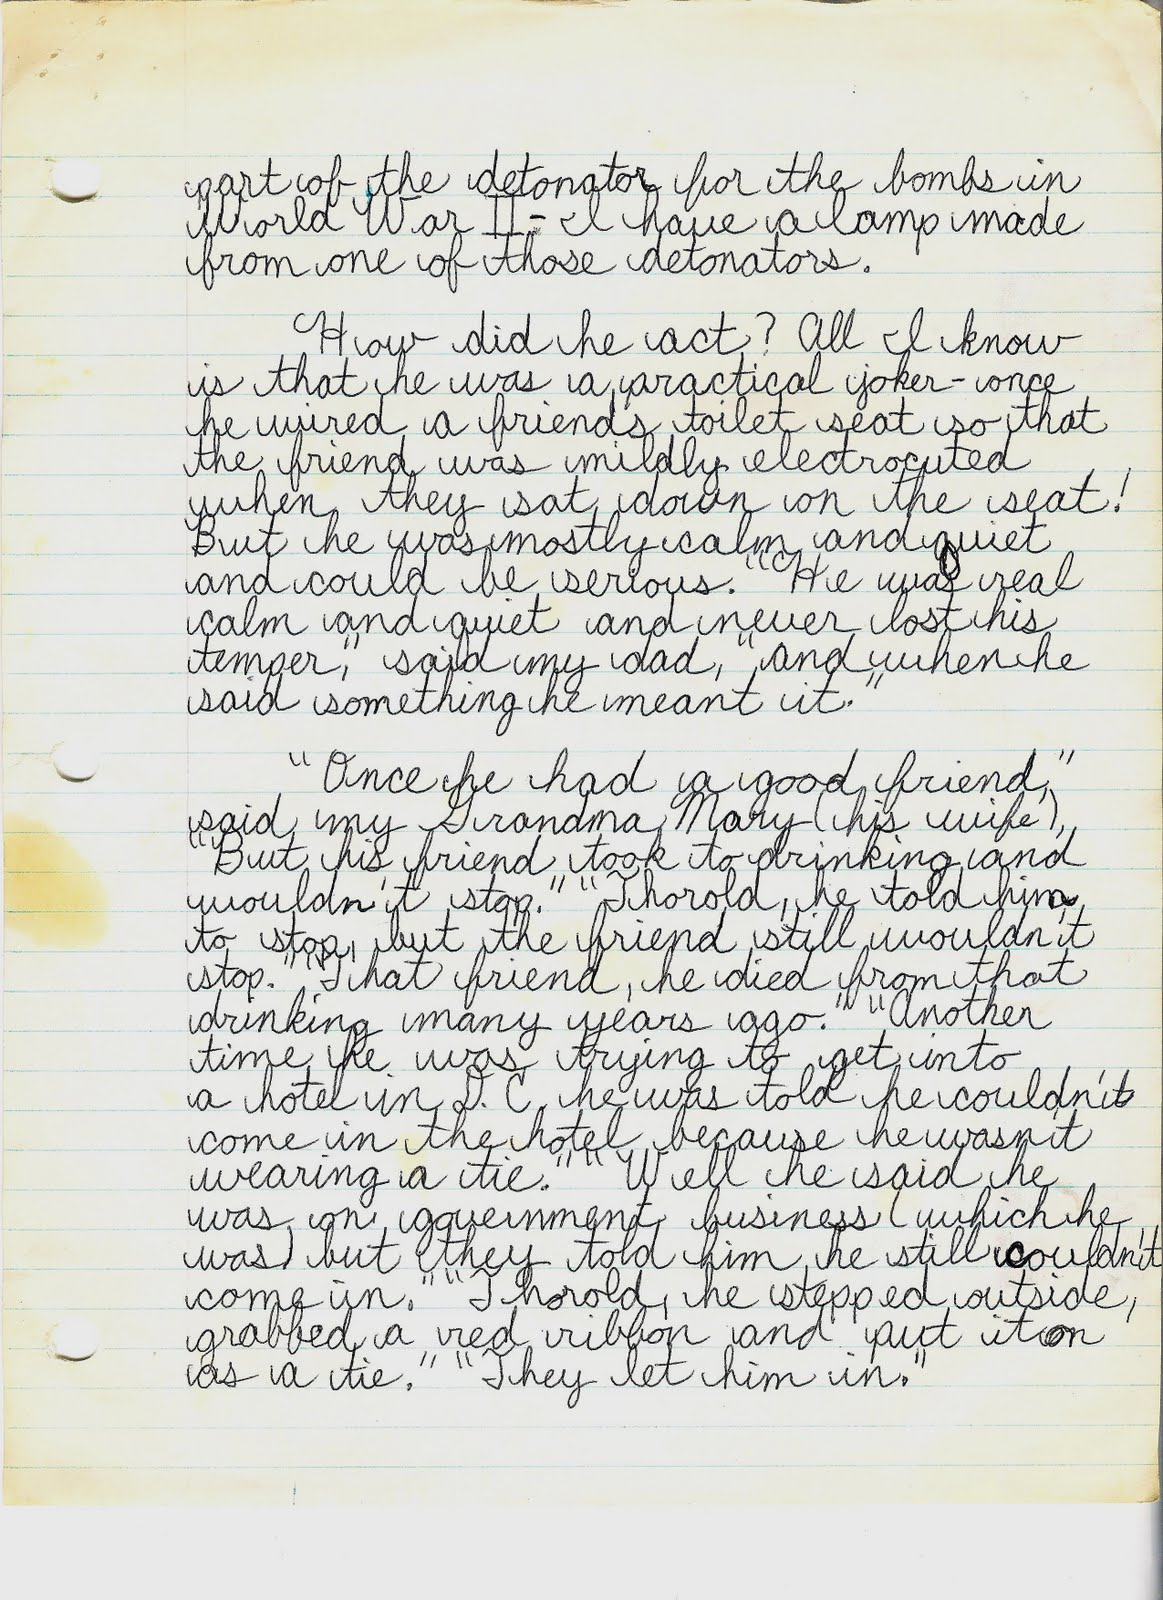 part of the detonator for the bombs in
World War II - I have a lamp made
from one of those detonators.
How did he act? All I know
is that he was a practical joker - once
he wired a friend's toilet seat so that
the friend was mildly electrocuted
when they sat down on the seat!
But he was mostly calm and quiet
and could be serious. "He was real
calm and quiet and never lost his
temper," said my dad, "and when he
said something he meant it."
"Once he had a good friend,"
said my Grandma Mary (his wife),
"But his friend took to drinking and
wouldn't stop." "Thorold, he told him
to stop, but the friend still wouldn't
stop." "That friend, he died from that
drinking many years ago." "Another
time he was trying to get into
a hotel in D.C. he was told he couldn't
come in the hotel because he wasn't
wearing a tie." "Well he said he
was on government business (which he
was) but they told him he still couldn't
come in." "Thorold, he stepped outside,
grabbed a red ribbon and put it on
as a tie." "They let him in."